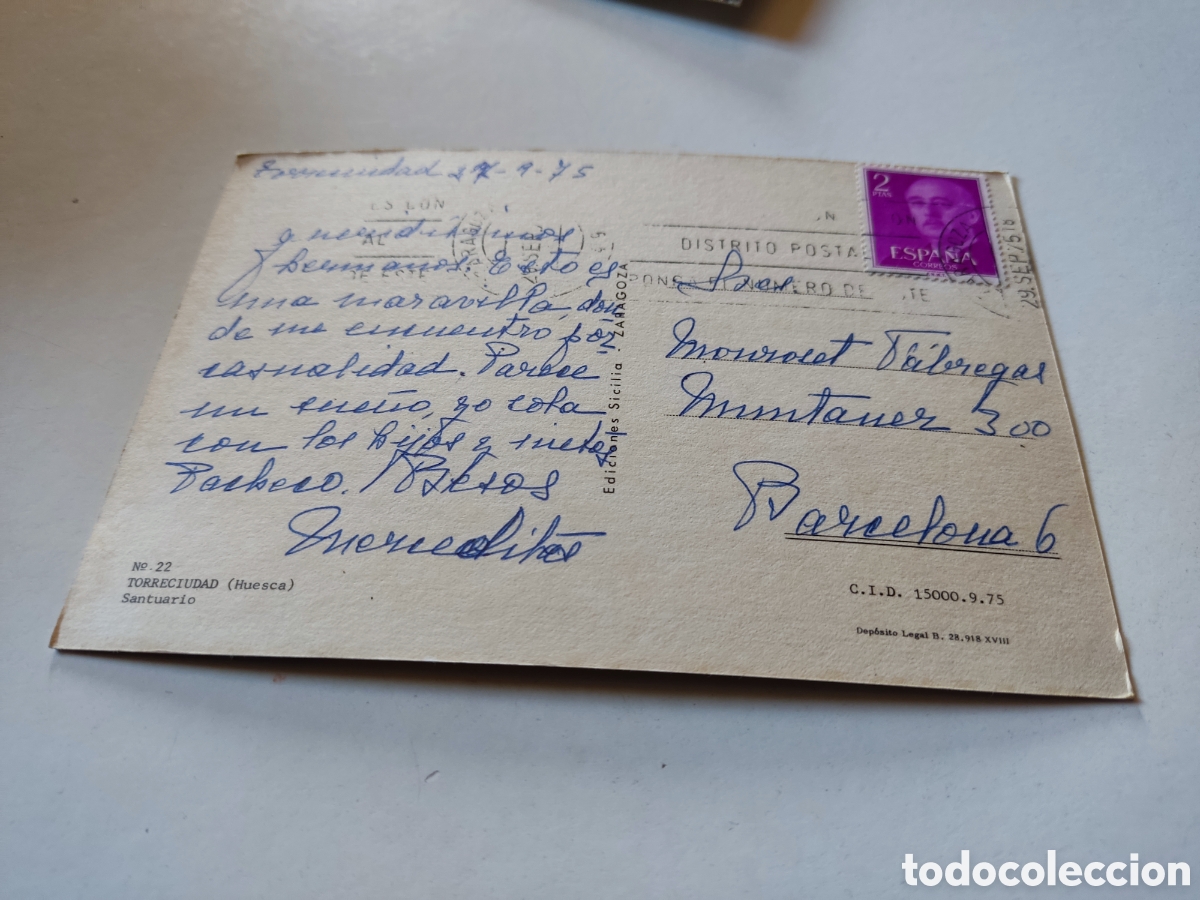 Torreciudad 27-9-75
queridísimos
hermanos. Esto es
una maravilla, don-
de me encuentro por
casualidad. Parece
un sueño, yo sola
con los hijos y nietos
Pacheco. Besos
Merceditas
Nº 22
TORRECIUDAD (Huesca)
Santuario
Ediciones Sicilia - ZARAGOZA
2
PTAS
ESPAÑA
CORREOS
DISTRITO POSTA
29.SEP.75
Sres
Monroset Fábregas
Muntaner 300
Barcelona 6
C.I.D. 15000.9.75
Depósito Legal B. 28.918-XVIII
todocoleccion